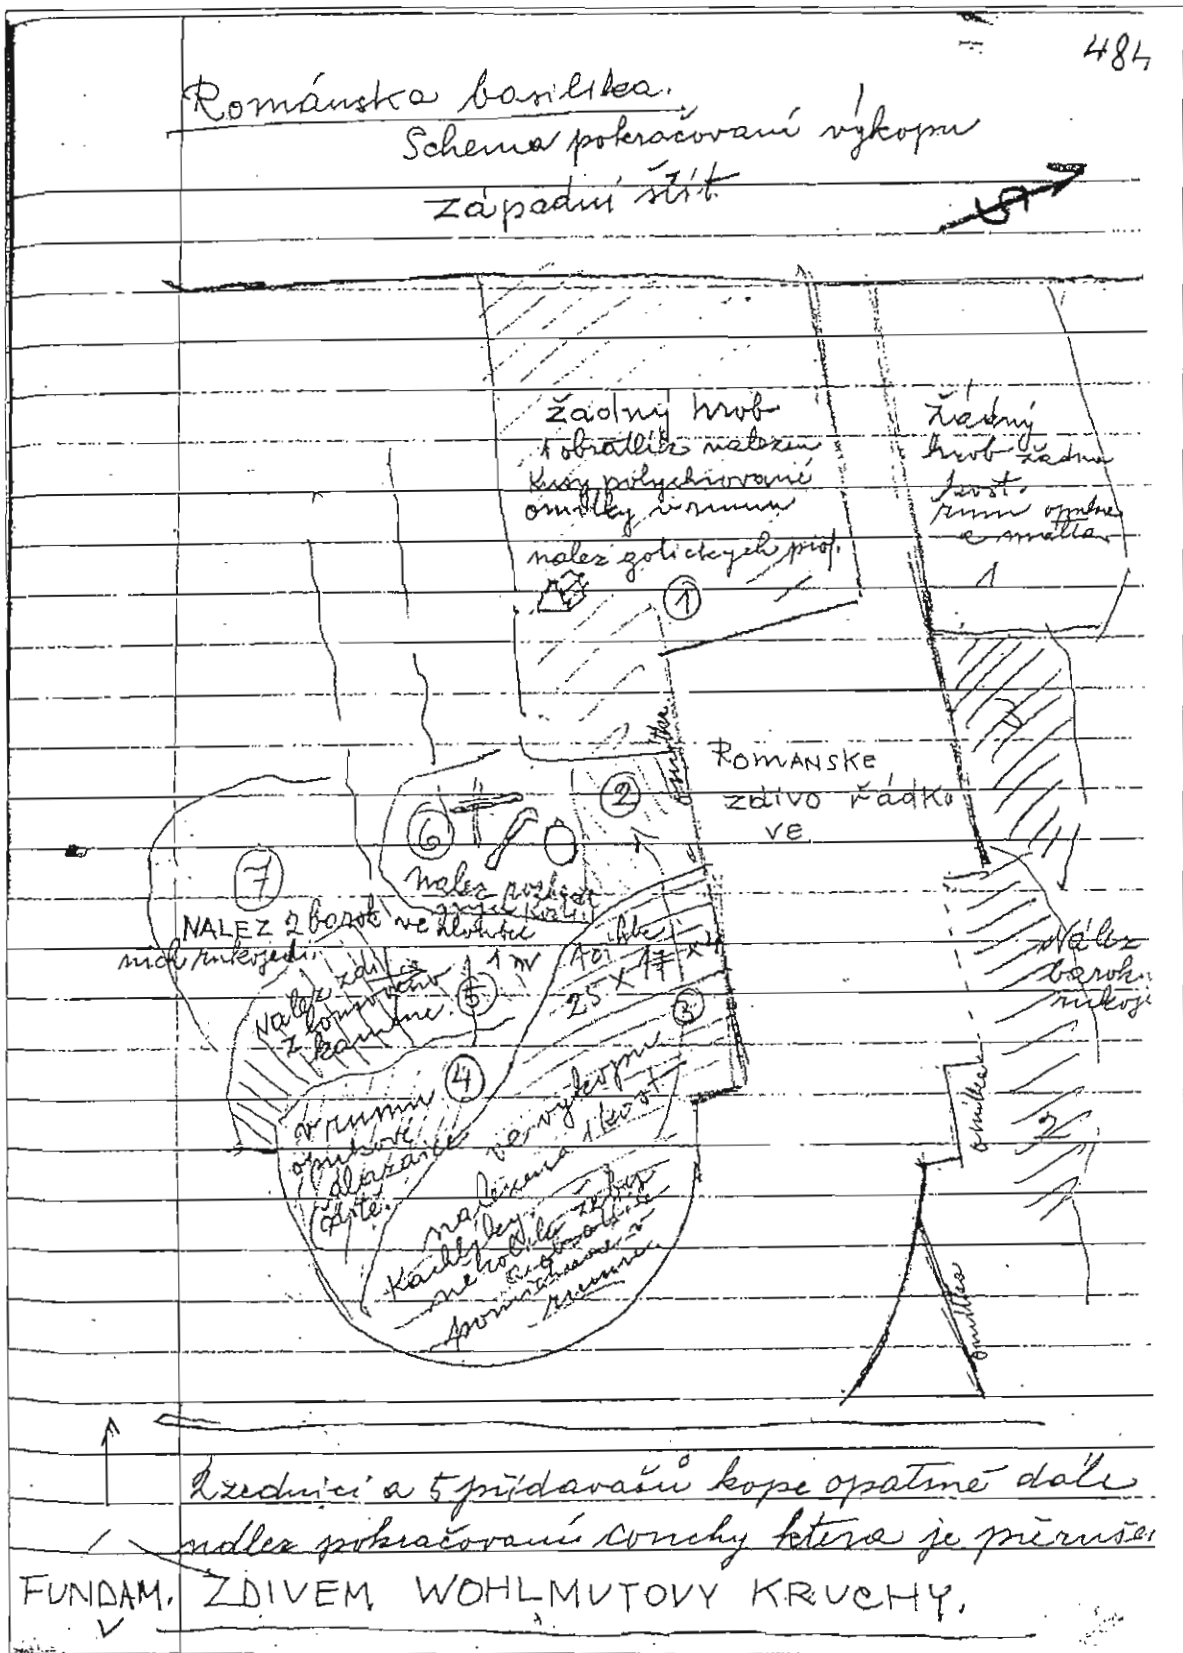 484
Románska basilika.
Schema pokračovaní výkopu
západní štít
S
žádný hrob
1 obratlík nalezen
Kusy polychrované
omítky v rumu
nalez gotických prof.
1
Žádný
hrob žádna
kost.
rum opuka
a malta
1
omítka
ROMANSKE
ZDIVO ŘÁDKO
VE
2
6
Nalez
7
NALEZ 2 barok ve hloubce
1 m
nich rukojedi.
Nalez zdiva
z lomového
kamene.
5
25 X 17 X
3
4
v rumu
opukové
dlazdice
žluté.
ve výkopu
nalezena 1 kost
několik
a obratle
v
rumu.
Nález
barok.
rukoj
2
omítka
omítka
2 zedníci a 5 přidavašů kope opatrně dále
nález pokračovaní conchy ktera je přeruše
FUNDAM. ZDIVEM WOHLMUTOVY KRUCHY.